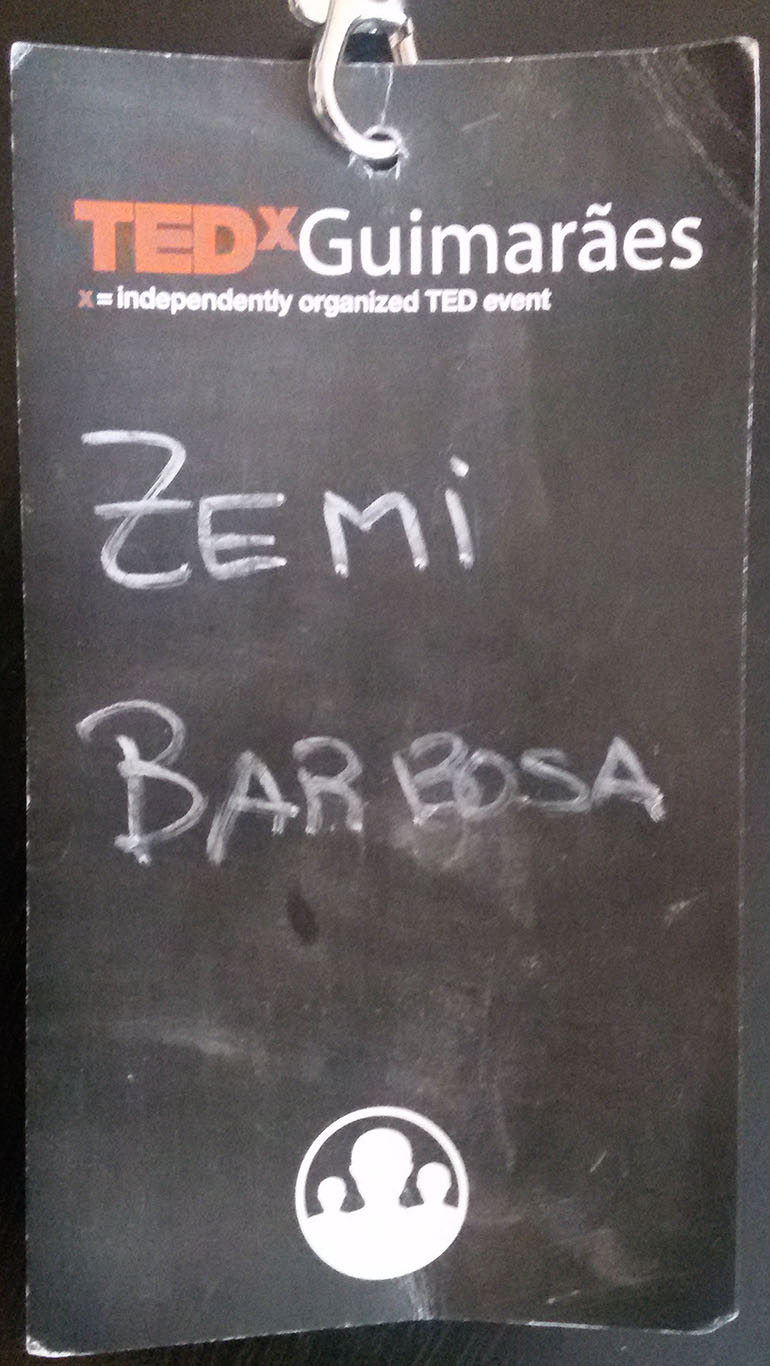 TEDxGuimarães
x = independently organized TED event
ZEMi
BARBOSA